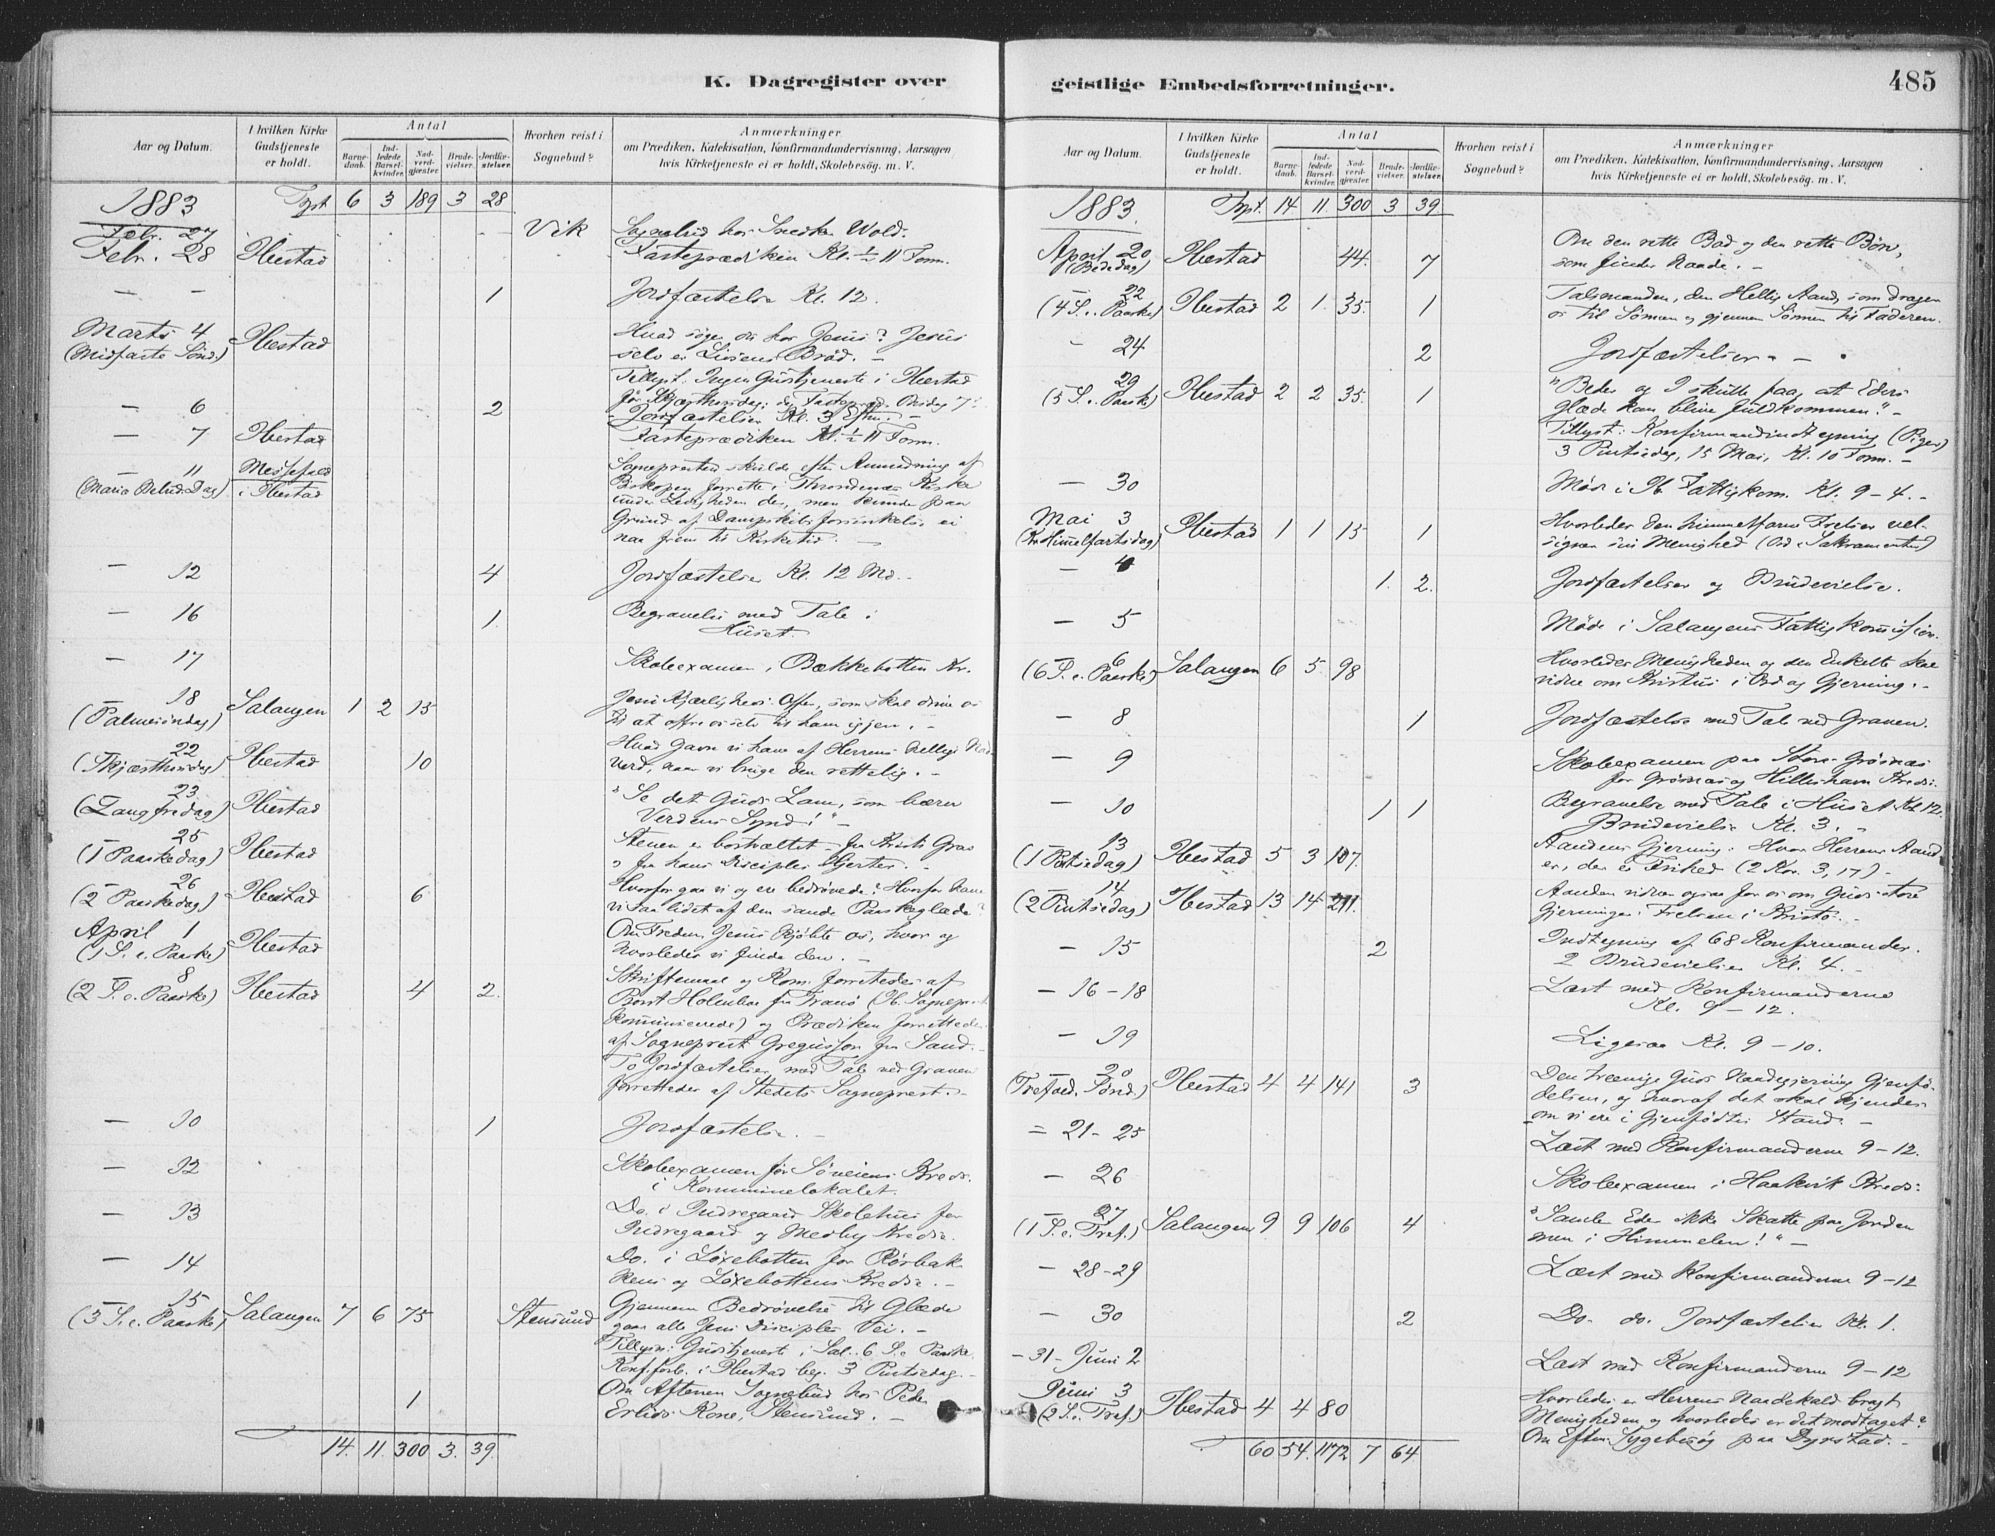 K. Dagregister over
Aar og Datum. I hvilken Kirke Gudstjeneste er holdt. Antal Barnedaab. Indledede Barselkvinder. Nadverdgjester. Brudevielser. Jordfæstelser. Hvorhen reist i Sognebud? Anmærkninger om Prædiken, Katekisation, Konfirmandundervisning, Aarsagen hvis Kirketjeneste ei er holdt, Skolebesøg. m. V.
1883 Tpt 6 3 189 3 28
Febr. 27 Vik Sognebud hos Snedker Wold.
Febr. 28 Ibestad Fasteprædiken Kl. ½ 11 Form.
— — 1 Jordfæstelse Kl. 12.
Marts 4 Ibestad Hvad søger vi hos Jesus? Jesus
(Midfaste Sønd.) selv er Livsens Brød. —
Tillyst: Ingen Gudstjeneste i Ibestad
før Skjærthorsdag; dog Fastepræd. Onsdag 7de
— 6 2 Jordfæstelser Kl. 3 Efterm. —
— 7 Ibestad Fasteprædiken Kl. ½ 11 Form.
— 11 Messefald Sognepresten skulde efter Anmodning af
(Maria Bebud. Dag) i Ibestad Biskopen forrette i Throndenæs Kirke
under Ledigheden der, men kunde paa
Grund af Dampskibs forsinkelse ei
naa frem til Kirketid. —
— 12 4 Jordfæstelse Kl. 12 Md.
— 16 1. Begravelse med Tale i
Huset.
— 17 Skoleexamen i Bækkebotten Kr.
— 18 Salangen 1 2 15 Jesu Kjærligheds Offer, som skal drive os
(Palmesøndag) til at ofre os selv til ham igjen. —
— 22 Ibestad 10 Hvad Gavn vi have af Herrens hellige Nad-
(Skjærthorsdag) verd, naar vi bruge den rettelig. —
— 23 Ibestad "Se det Guds Lam, som bærer
(Langfredag) Verdens Synd!" —
— 25 Ibestad Stenen er bortvæltet — fra Kristi Grav
(1 Paaskedag) og fra hans Disciples Hjerter. —
— 26 Ibestad 6 Hvorfor gaa vi og ere bedrøvede? Hvorfor have
(2 Paaskedag) vi saa lidet af den sande Paaskeglæde?
April 1 Ibestad Om Freden, Jesus kjøbte os, hvor og
(1 S. e. Paaske) hvorledes vi finde den. —
— 8 Ibestad 4 2. Skriftemaal og Kom. forrettedes af
(2 S. e. Paaske) Prost Holmboe fra Tranø (Ib. Sogneprest
kommunicerede) og Prædiken forrettedes
af Sogneprest Gregussson fra Sand. —
To Jordfæstelser med Tale ved Graven
forrettedes af Stedets Sogneprest. —
— 10 1 Jordfæstelse. —
— 12 Skoleexamen for Søveiens Kreds.
i Kommunelokalet.
— 13 Do. i Indregaard Skolehus for
Indregaard og Medby Kredse.
— 14 Do. i Løxebotten for Rørbak-
kens og Løxebottens Kredse. —
— 15 Salangen 7 6 75 Stensund Gjennem Bedrøvelse til Glæde
(3 S. e. Paaske) gaar alle Jesu Disciples Vei. —
Tillyst: Gudstjenest i Sal. 6 S. e. Paaske.
Konf.forb. i Ibestad beg. 3 Pintsedag. —
1 Om Aftenen Sognebud hos Peder
Erlids Kone, Stensund. —
14. 11. 300 3. 39.
geistlige Embedsforretninger.
485
Aar og Datum. I hvilken Kirke Gudstjeneste er holdt. Antal Barnedaab. Indledede Barselkvinder. Nadverdgjester. Brudevielser. Jordfæstelser. Hvorhen reist i Sognebud? Anmærkninger om Prædiken, Katekisation, Konfirmandundervisning, Aarsagen hvis Kirketjeneste ei er holdt, Skolebesøg. m. V.
1883. Tpt. 14 11. 300 3 39
April 20 Ibestad 44. 7 Om den rette Bod og den rette Bøn,
(Bededag) som finder Naade. —
— 22 Ibestad 2 1. 35. 1 Talsmanden, den Hellig Aand, som drager
(4 S. e. Paaske) os til Sønnen og gjennem Sønnen til Faderen.
— 24 2 Jordfæstelser. —
— 29 Ibestad 2 2 35. 1 "Beder og I skulle faa, at Eders
(5 S. e. Paaske) Glæde kan blive fuldkommen." —
Tillyst: Konfirmandindtegning (Piger)
3 Pintsedag, 15 Mai, Kl. 10 Form. —
— 30 Møde i Ib. Fattigkom. Kl. 9 – 4. —
Mai 3 Ibestad 1 1 15 1 Hvorledes den himmelfarne Frelser vel-
(Kr. Himmelfartsdag) signer sin Menighed (Ord. Sakramenter)
— 4 1. 2. Jordfæstelser og Brudevielse.
— 5 Møde i Salangens Fattigkommission.
— 6 Salangen 6 5. 98 Hvorledes Menigheden og den Enkelte skal
(6 S. e. Paaske) vidne om Kristus i Ord og Gjerning. —
— 8 1 Jordfæstelse med Tale ved Graven.
— 9 Skoleexamen paa Store-Grøsnæs
for Grøsnæs og Hilleshavn Kredse
— 10 1 1 Begravelse med Tale i Huset Kl. 12.
Brudevielse Kl. 3.
— 13 Ibestad 5 3 107. Aandens Gjerning: Hvor Herrens Aand
(1 Pintsedag) er, der er Frihed (2 Kor. 3, 17) —
— 14 Ibestad 13 14 211. Aanden vidner ogsaa for os om Guds store
(2 Pintsedag) Gjerninger: Frelsen i Kristo. —
— 15 2 Indtegning af 68 Konfirmander.
2 Brudevielser Kl. 4. —
— 16 – 18 Læst med Konfirmanderne
Kl. 9 – 12.
— 19 Ligesaa Kl. 9 – 10.
— 20 Ibestad 4 4 141 3 Den treenige Guds Naadegjerning Gjenfø-
(Trefold. Sønd.) delsen, og hvoraf det skal kjendes
om vi ere i Gjenfødtes Stand. —
— 21 – 25 Læst med Konfirmanderne 9 – 12.
— 26 Skoleexamen i Haakvik Kreds:
— 27 Salangen 9 9 106 4 "Samle Eder ikke Skatte paa Jorden
(1 S. e. Tref.) men i Himmelen!" —
— 28 – 29 Læst med Konfirmanderne 9 – 12
— 30 2 Do. do. Jordfæstelser Kl. 1.
— 31 – Juni 2 Læst med Konfirmanderne 9 – 12
Juni 3 Ibestad 4 4 80 Hvorledes er Herrens Naadekald bragt
(2 S. e. Tref.) Menigheden og hvorledes er det modtaget?
Om Efterm. Sygebesøg paa Dyrstad. —
60. 54. 1172 7 64